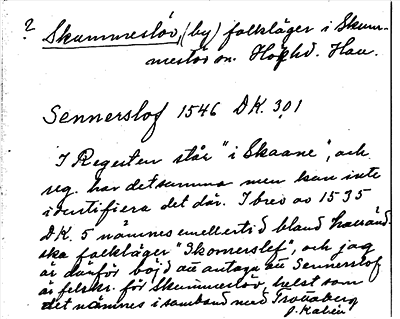 ? Skummeslöv, (by) folkläger i Skum-
meslövs sn. Hökhd. Hall.
Sennerslof 1546 DK. 3,01
I Regesten står "i Skaane", och
reg. har detsamma men kan inte
identifiera det där. I brev av 1535
DK. 5 nämnes emellertid bland halländ-
ska folkläger "Skomerslef", och jag
är därför böjd att antaga att Sennerslof
är felskr. för Skummeslöv, helst som
det nämnes i samband med Trönaberg